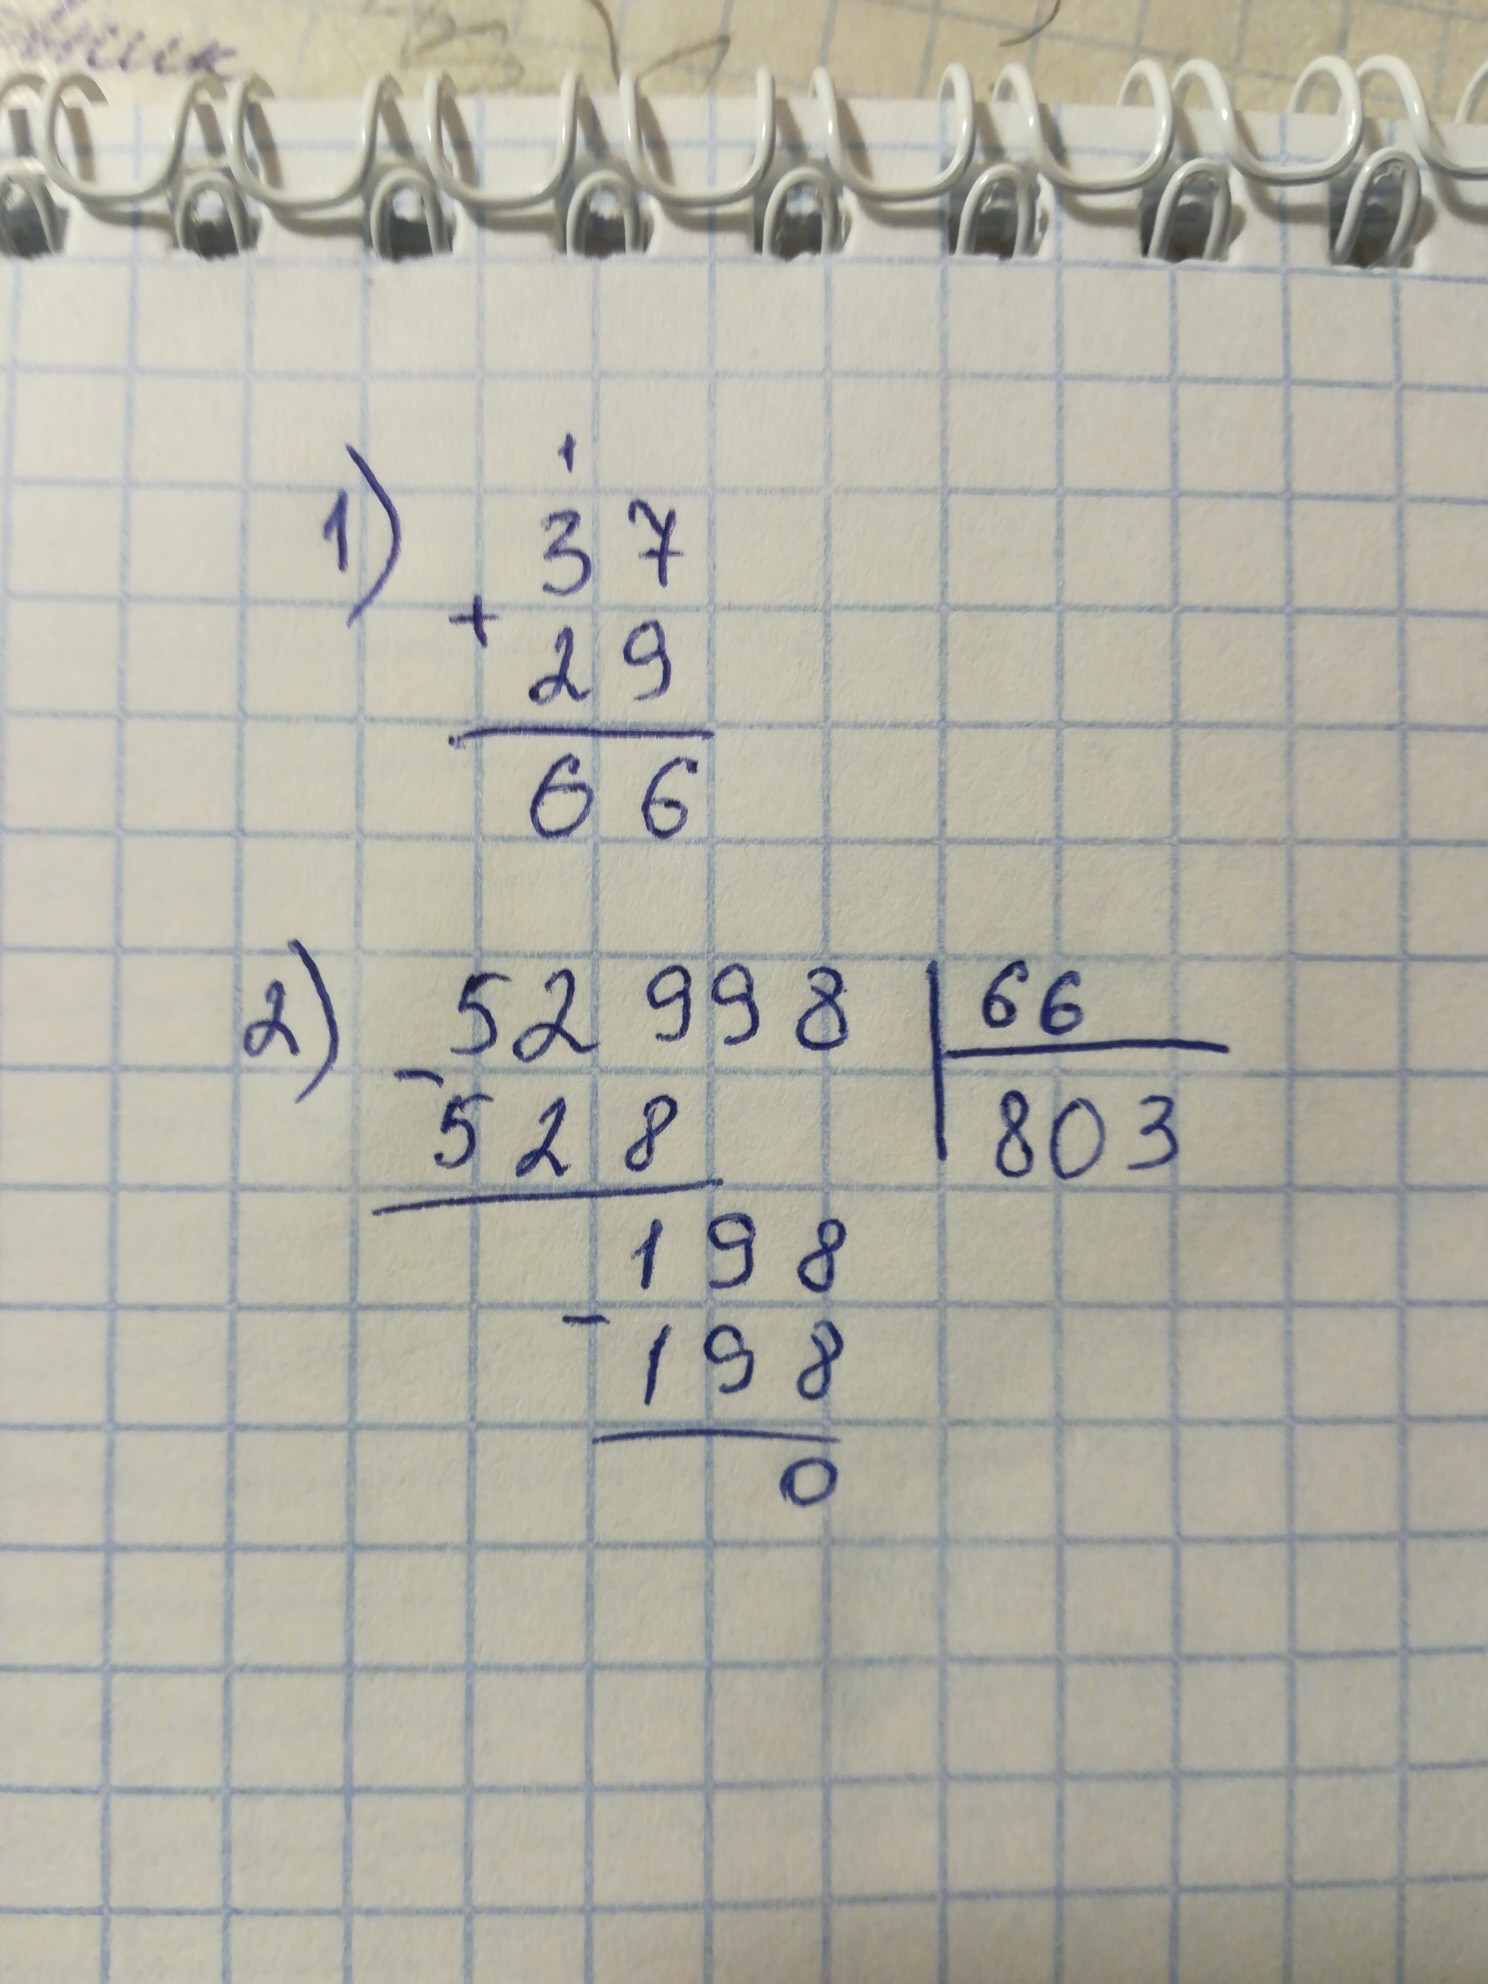 1
1) 37
+
29
66
2) 52998 66
-
528 803
198
-
198
0